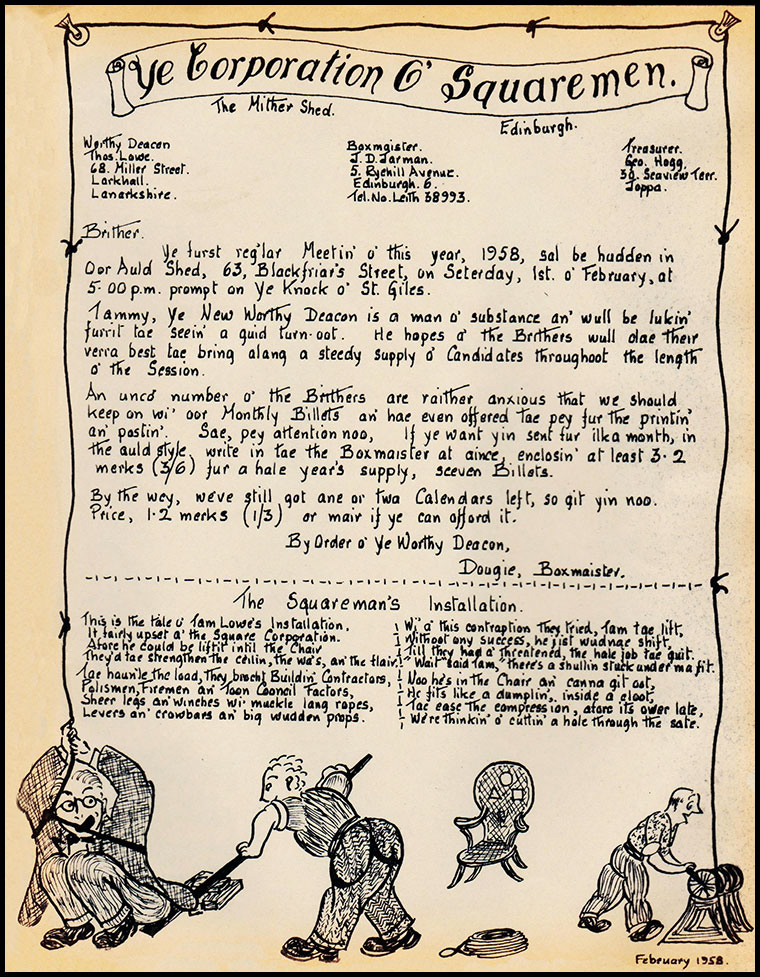 Ye Corporation O' Squaremen.
The Mither Shed.
Edinburgh.
Worthy Deacon
Thos. Lowe.
68. Miller Street.
Larkhall.
Lanarkshire.
Boxmaister.
J. D. Jarman.
5. Ryehill Avenue.
Edinburgh. 6.
Tel. No. Leith 38993.
Treasurer.
Geo. Hogg.
30. Seaview Terr.
Joppa.
Brither.
Ye furst reg'lar Meetin' o' this year, 1958, sal be hudden in
Oor Auld Shed, 63, Blackfriar's Street, on Seterday, 1st. o' February, at
5-00 p.m. prompt on Ye Knock o' St. Giles.
Tammy, Ye New Worthy Deacon is a man o' substance an' wull be lukin'
furrit tae seein' a guid turn-oot. He hopes a' the Brithers wull dae their
verra best tae bring alang a steedy supply o' Candidates throughoot the length
o' the Session.
An unco number o' the Brithers are raither anxious that we should
keep on wi' oor Monthly Billets an' hae even offered tae pey fur the printin'
an' postin'. Sae, pey attention noo, If ye want yin sent fur ilka month, in
the auld style, write in tae the Boxmaister at aince, enclosin' at least 3·2
merks (3/6) fur a hale year's supply, seeven Billets.
By the wey, we've still got ane or twa Calendars left, so git yin noo.
Price, 1·2 merks (1/3) or mair if ye can afford it.
By Order o' Ye Worthy Deacon,
Dougie, Boxmaister.
The Squareman's Installation.
This is the tale o' Tam Lowe's Installation.
It fairly upset a' the Square Corporation.
Afore he could be liftit intil the Chair
They'd tae strengthen the ceilin, the wa's, an' the flair.
Tae haun'le the load, They brocht Buildin' Contractors,
Polismen, Firemen an' Toon Cooncil Factors,
Sheer legs an' winches wi' muckle lang ropes,
Levers an' crowbars an' big wudden props.
Wi' a' this contraption They tried, Tam tae lift,
Without ony success, he jist wudnae shift,
Till they had a' threatened, the hale job tae quit.
"Wait" said Tam, "there's a shullin stuck under ma fit.
Noo he's in the Chair an' canna git oot,
He fits like a dumplin', inside a cloot,
Tae ease the compression, afore its ower late,
We're thinkin' o' cuttin' a hole through the sate.
February 1958.